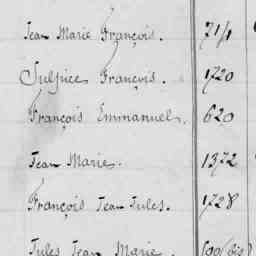 Jean Marie François. 71/1
Sulpice François. 1720
François Emmanuel. 620
Jean Marie. 1372
François Jean Jules. 1728
Jules Jean Marie. (bis)